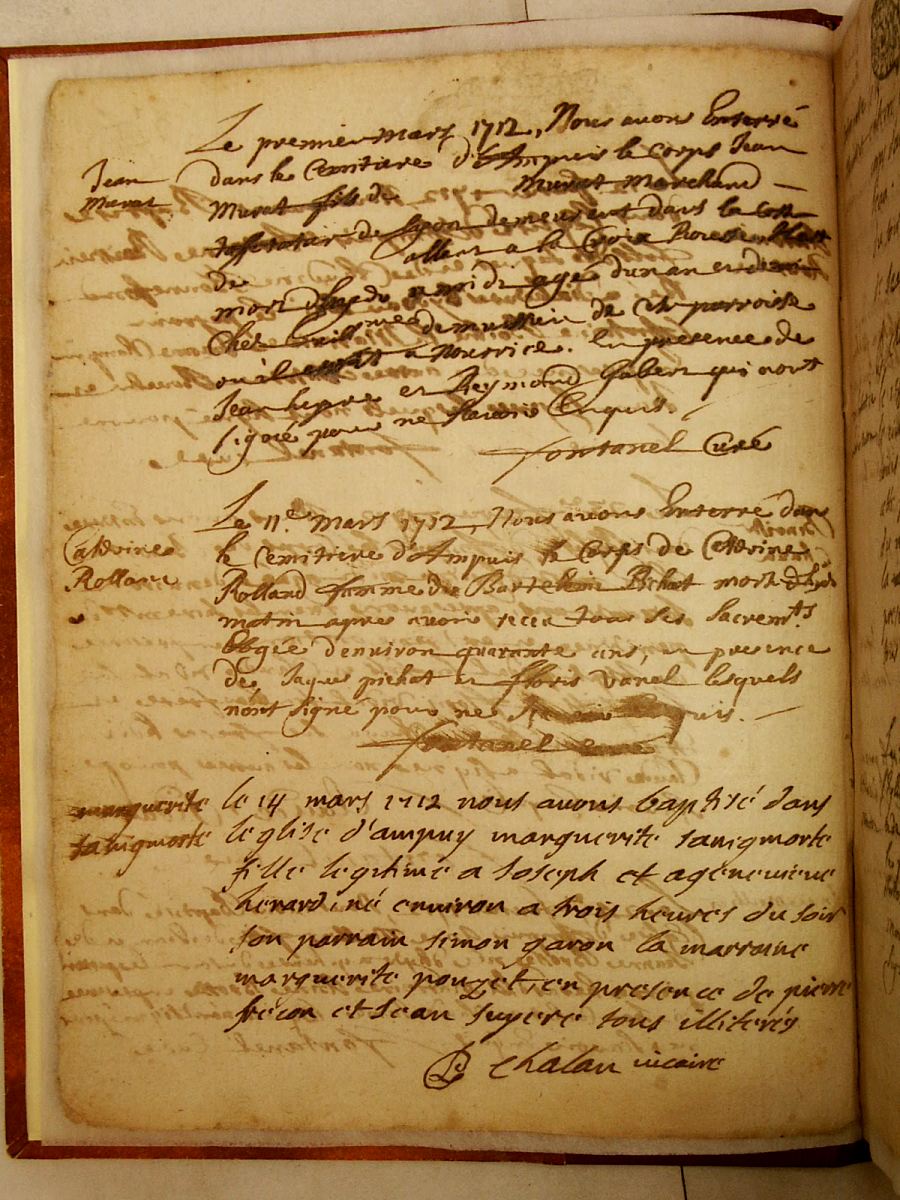 Le premier Mars 1712, Nous avons Enterré
Jean
Murat
dans le Cemitiere d'Ampuis le corps Jean
Murat fils de Murat Marchand
taffetatier de Lyon demeurant dans la Coste
de allant a la Croix Rousse
mort d'huy a midi agé d'un an et demi
Chez de de ct parroisse
ou il estoit a Nourrice. En presence de
Jean et Reymond Gabert qui n'ont
signé pour ne Scavoir Enquis.
fontanel Curé
Le 11e. Mars 1712, Nous avons Enterré dans
Catherine
Rolland
le Cemitiere d'Ampuis le Corps de Catherine
Rolland femme de Bartelemi Pichat morte d'huy
matin apres avoir receu tous ses Sacremts.
Eagée d'environ quarante ans, en presence
de Jaques pichat et floris Vanel lesquels
n'ont signé pour ne Enquis.
fontanel curé
marguerite
sauigmorte
le 14 mars 1712 nous avons baptisé dans
leglise d'ampuy marguerite sauigmorte
fille legitime a Joseph et a genevieve
herard, né environ a trois heures du soir
son parrain simon garon la marraine
marguerite pouzet, en presence de pierre
frecon et Jean supere tous illiterés
chalan vicaire